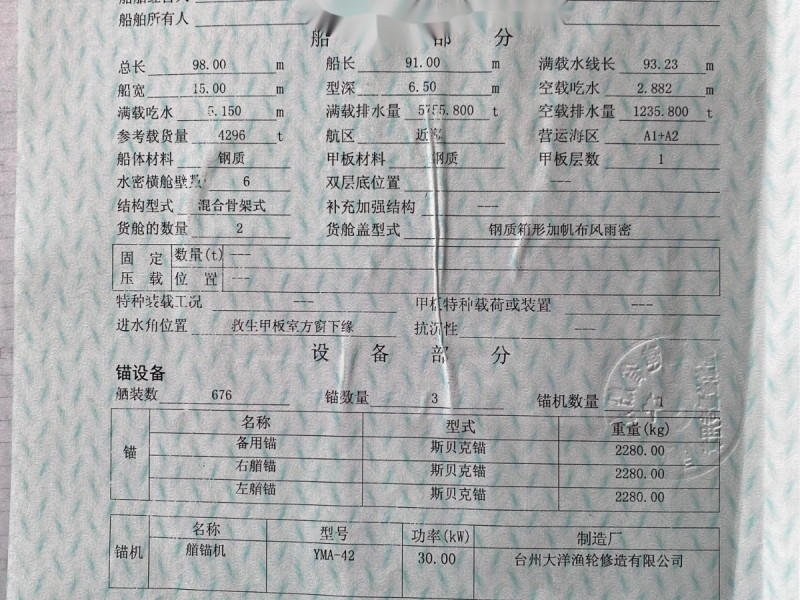 船舶所有人
船 部 分
总长 98.00 m 船长 91.00 m 满载水线长 93.23 m
船宽 15.00 m 型深 6.50 m 空载吃水 2.882 m
满载吃水 5.150 m 满载排水量 5755.800 t 空载排水量 1235.800 t
参考载货量 4296 t 航区 近海 营运海区 A1+A2
船体材料 钢质 甲板材料 钢质 甲板层数 1
水密横舱壁数 6 双层底位置 ---
结构型式 混合骨架式 补充加强结构 ---
货舱的数量 2 货舱盖型式 钢质箱形加帆布风雨密
固定压载 数量(t) ---
位置 ---
特种装载工况 --- 甲板特种载荷或装置 ---
进水角位置 救生甲板室方窗下缘 抗沉性 ---
设备部分
锚设备
舾装数 676 锚数量 3 锚机数量 1
锚 名称 型式 重量(kg)
备用锚 斯贝克锚 2280.00
右艏锚 斯贝克锚 2280.00
左艏锚 斯贝克锚 2280.00
锚机 名称 型号 功率(kW) 制造厂
艏锚机 YMA-42 30.00 台州大洋渔轮修造有限公司